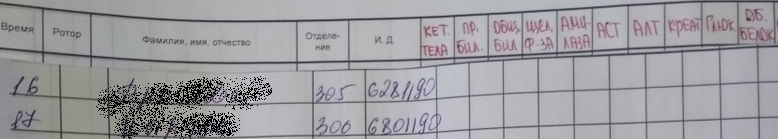 Время Ротор Фамилия, имя, отчество Отделе-ние И. Д. КЕТ. ТЕЛА ПР. БИЛ. ОБЩ. БИЛ ЩЕЛ. Ф-ЗА АМИ-ЛАЗА АСТ АЛТ КРЕАТ ГЛЮК ОБ. БЕЛОК
16 305 6281190
17 306 6801190